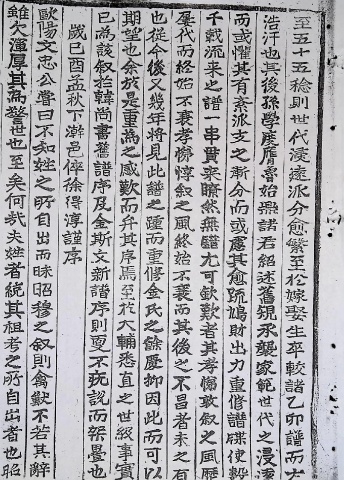 至五十五稔則世代浸遠派分愈繁至於嫁娶生卒較諸乙卯譜而尤
浩汗也其後孫學慶膺魯始無諸君紹述舊規承襲家範世代之浸遠
而或懼其有紊派支之漸分而或慮其愈疏鳩財出力重修譜牒使數
千載流來之譜一串貫來瞭然無翳尤可欽歎者其孝悌敦叙之風歷
屢代而終始不衰孝悌惇叙之風終始不衰而其後之不昌者未之有
也從今後又幾年将見此譜之踵而重修金氏之餘慶抑因此而可以
期望也余於是重為之感歎而弁其序焉至於大輔悉直之世級事實
已為該叙於韓尚書舊譜序及金斯文新譜序則更不疣說而架疊也
歲己酉孟秋下澣邑倅徐得淳謹序
歐陽文忠公嘗曰不知姓之所自出而昧昭穆之叙則禽獣不若其辭
雖欠渾厚其為警世也至矣何哉夫姓者統其祖考之所自出者也昭